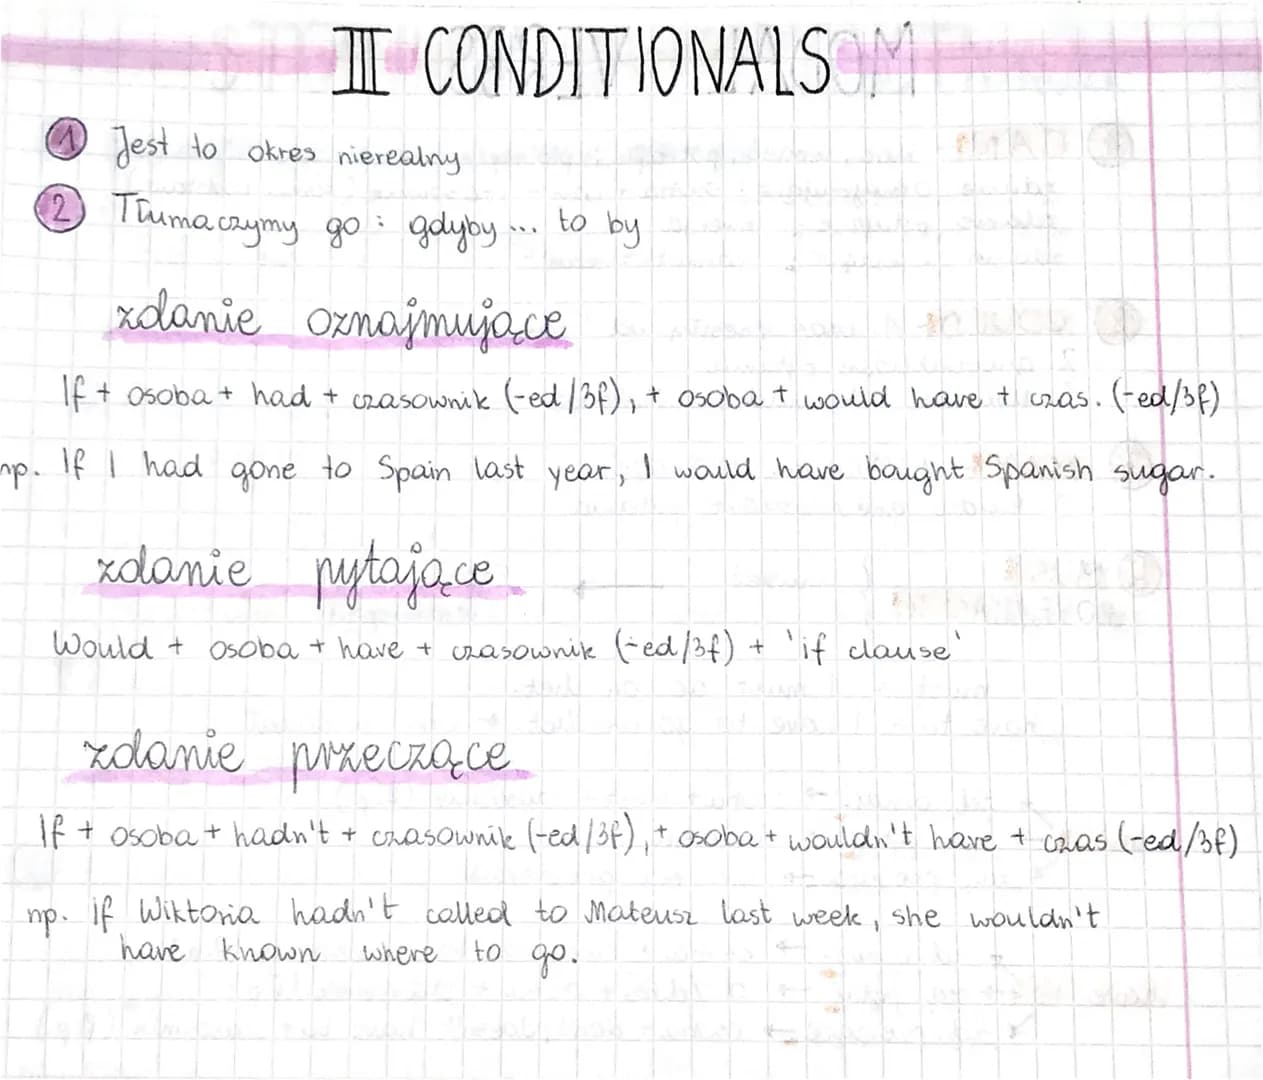 III CONDITIONALS
1 Jest to okres nierealny
2 Tłumaczymy go : gdyby... to by
zdanie oznajmujące
If + osoba + had + czasownik (-ed/3f), + osoba + would have + czas. (-ed/3f)
np. If I had gone to Spain last year, I would have bought Spanish sugar.
zdanie pytające
Would + osoba + have + czasownik (-ed/3f) + 'if clause'
zdanie przeczące
If + osoba + hadn't + czasownik (-ed/3f), + osoba + wouldn't have + czas (-ed/3f)
np. if Wiktoria hadn't called to Mateusz last week, she wouldn't
have known where to go.